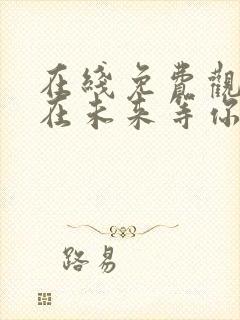 在綫免費觀
在未来等你
路易